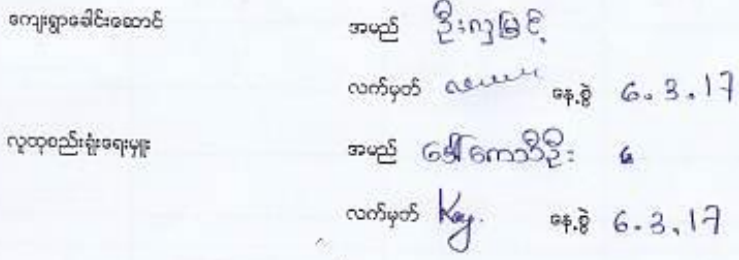 ကျေးရွာခေါင်းဆောင် အမည် ဦးလှမြင့်
လက်မှတ် နေ့စွဲ 6.3.17
လူထုစည်းရုံးရေးမှူး အမည် ဒေါ်ကေသီဦး
လက်မှတ် Kay. နေ့စွဲ 6.3.17